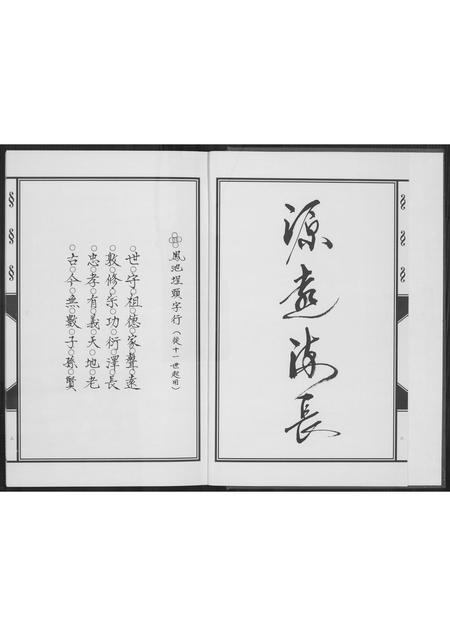 源遠流長
鳳池埕頭字行（從十一世起用）
世○守○祖○德○家○聲○遠
敦○修○宗○功○衍○澤○長
忠○孝○有○義○天○地○老
古○今○無○數○子○孫○賢